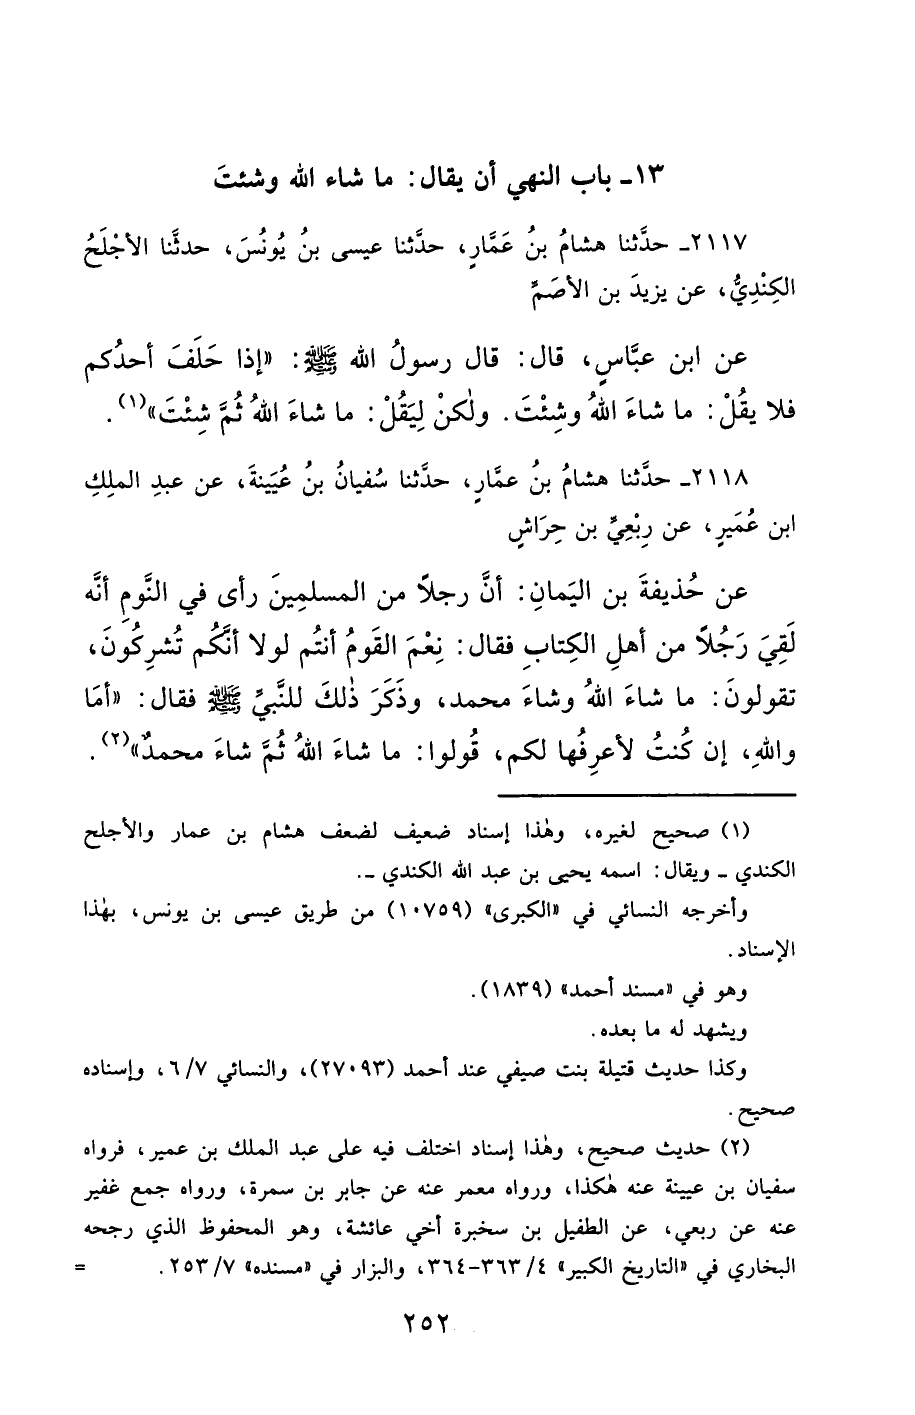 ١٣ـ باب النهي أن يقال: ما شاء الله وشئتَ
٢١١٧ـ حدَّثنا هشامُ بنُ عَمَّارٍ، حدَّثنا عيسى بنُ يُونُسَ، حدثَّنا الأجْلَحُ
الكِنْدِيُّ، عن يزيدَ بن الأصَمِّ
عن ابن عبَّاسٍ، قال: قال رسولُ الله ﷺ: «إذا حَلَفَ أحدُكم
فلا يقُلْ: ما شاءَ اللهُ وشِئْتَ. ولٰكنْ لِيَقُلْ: ما شاءَ اللهُ ثُمَّ شِئْتَ»(١).
٢١١٨ـ حدَّثنا هشامُ بنُ عمَّارٍ، حدَّثنا سُفيانُ بنُ عُيَينةَ، عن عبدِ الملِكِ
ابن عُمَيرٍ، عن رِبْعِيِّ بن حِرَاشٍ
عن حُذيفةَ بن اليَمانِ: أنَّ رجلاً من المسلمِينَ رأى في النَّومِ أنَّه
لَقِيَ رَجُلاً من أهلِ الكِتابِ فقال: نِعْمَ القَومُ أنتُم لولا أنَّكُم تُشرِكُونَ،
تقولونَ: ما شاءَ اللهُ وشاءَ محمد، وذَكَرَ ذٰلكَ للنَّبيِّ ﷺ فقال: «أمَا
واللهِ، إن كُنتُ لأعرِفُها لكم، قُولوا: ما شاءَ اللهُ ثُمَّ شاءَ محمدٌ»(٢).
(١) صحيح لغيره، وهٰذا إسناد ضعيف لضعف هشام بن عمار والأجلح
الكندي ـ ويقال: اسمه يحيى بن عبد الله الكندي ـ.
وأخرجه النسائي في «الكبرى» (١٠٧٥٩) من طريق عيسى بن يونس، بهٰذا
الإسناد.
وهو في «مسند أحمد» (١٨٣٩).
ويشهد له ما بعده.
وكذا حديث قتيلة بنت صيفي عند أحمد (٢٧٠٩٣)، والنسائي ٦/٧، وإسناده
صحيح.
(٢) حديث صحيح، وهٰذا إسناد اختلف فيه على عبد الملك بن عمير، فرواه
سفيان بن عيينة عنه هٰكذا، ورواه معمر عنه عن جابر بن سمرة، ورواه جمع غفير
عنه عن ربعي، عن الطفيل بن سخبرة أخي عائشة، وهو المحفوظ الذي رجحه
البخاري في «التاريخ الكبير» ٤/ ٣٦٣-٣٦٤، والبزار في «مسنده» ٧/ ٢٥٣. =
٢٥٢